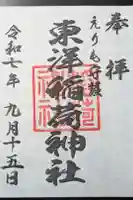 奉拝
えりも町鎮座
東洋稲荷神社
令和七年九月十五日